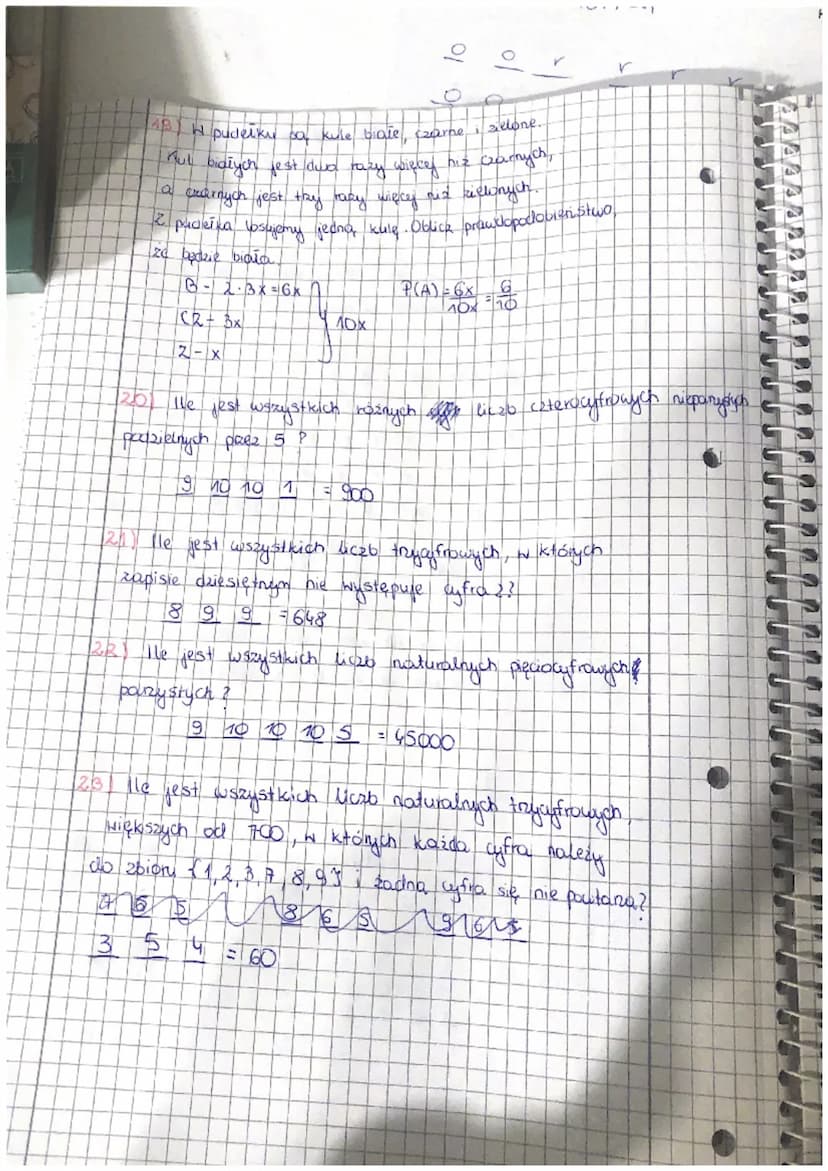 19) W pudełku są kule białe, czarne i zielone.
Kul białych jest dwa razy więcej niż czarnych,
a czarnych jest trzy razy więcej niż zielonych.
Z pudełka losujemy jedną kulę. Oblicz prawdopodobieństwo,
że będzie biała.
B - 2·3x=6x
CZ - 3x
Z - x
10x
P(A) = 6x/10x = 6/10
20) Ile jest wszystkich różnych liczb czterocyfrowych nieparzystych
podzielnych przez 5?
9 10 10 1 = 900
21) Ile jest wszystkich liczb trzycyfrowych, w których
zapisie dziesiętnym nie występuje cyfra 2?
8 9 9 = 648
22) Ile jest wszystkich liczb naturalnych pięciocyfrowych
parzystych?
9 10 10 10 5 = 45000
23) Ile jest wszystkich liczb naturalnych trzycyfrowych,
większych od 700, w których każda cyfra należy
do zbioru {1,2,3,7,8,9} i żadna cyfra się nie powtarza?
7 6 5 8 6 5 9 6 5
3 5 4 = 60